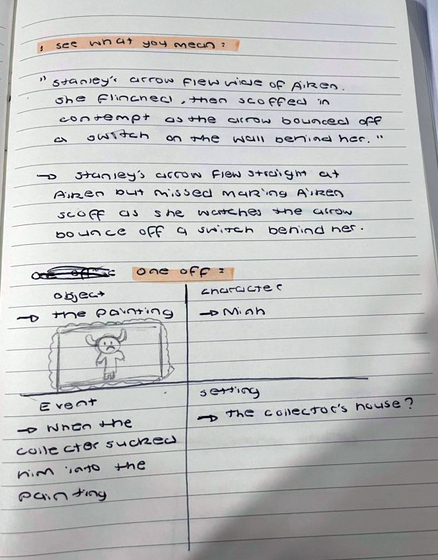 I see what you mean:
"Stanley's arrow flew wide of Aizen.
She flinched, then scoffed in
contempt as the arrow bounced off
a switch on the wall behind her."
→ Stanley's arrow flew straight at
Aizen but missed making Aizen
scoff as she watches the arrow
bounce off a switch behind her.
one off:
object
→ the painting
character
→ Minh
Event
→ when the
collecter sucked
him into the
painting
setting
→ the collector's house?